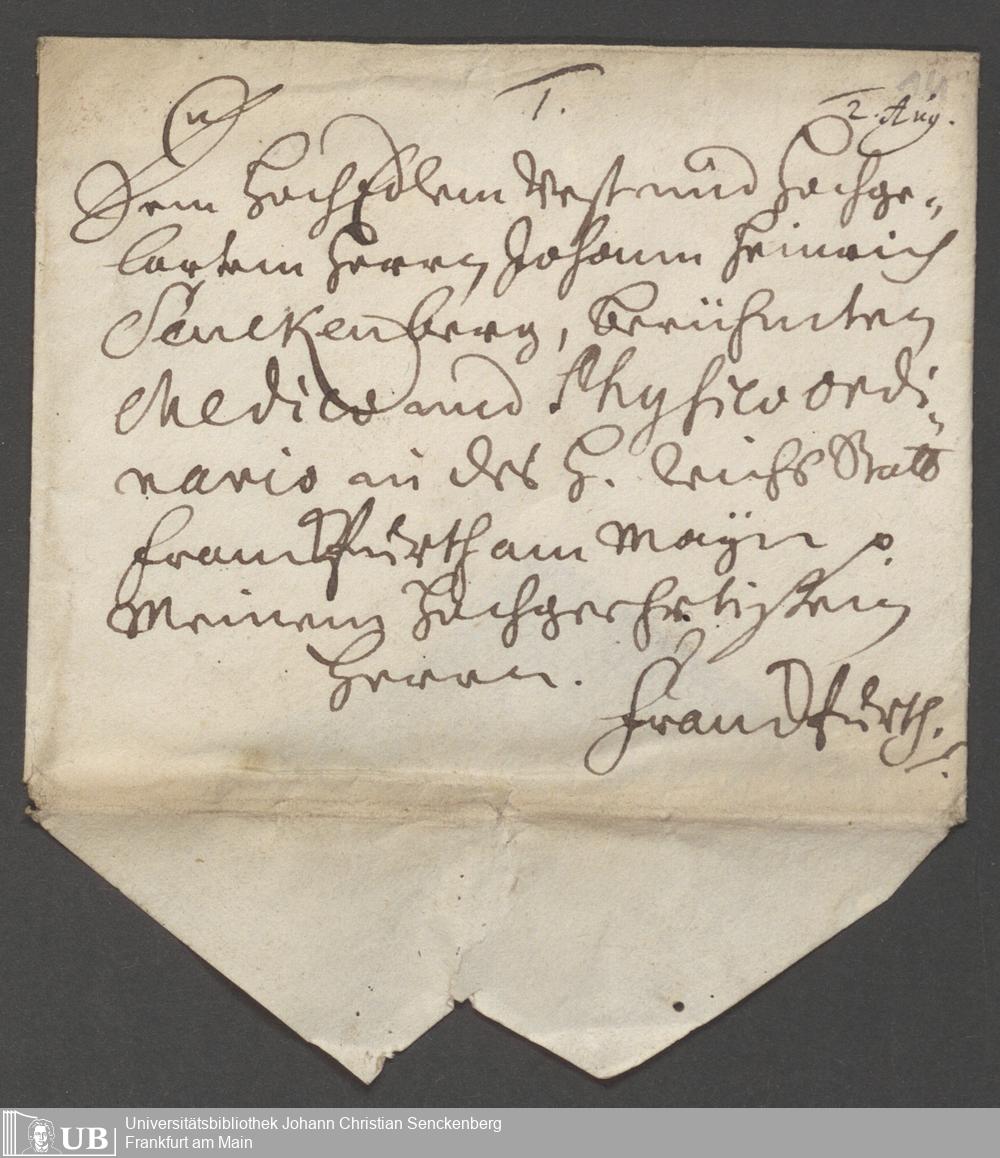 1.
2. Aug.
Dem HochEdlem Vest und Hochge-
lartem Herrn Johann Heinrich
Senckenberg, berühmten
Medico und Physico ordi-
nario in des H. Reichs Statt
Franckfurth am Mayn
Meinem Hochgeehrtisten
Herrn.
Franckfurth.
UB
Universitätsbibliothek Johann Christian Senckenberg
Frankfurt am Main